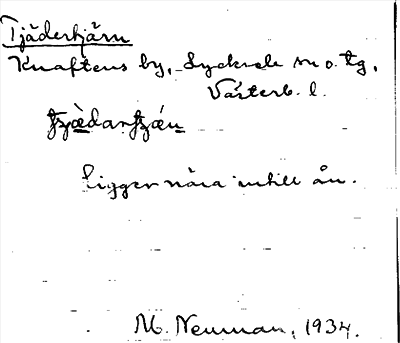 Tjädertjärn
Knaftens by, Lycksele sn o. tg,
Västerb. l.
ligger nära intill ån.
M. Neuman, 1934.